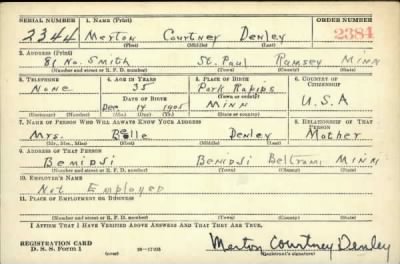 SERIAL NUMBER 1. NAME (Print) ORDER NUMBER
3344 Merton Courtney Denley 2384
(First) (Middle) (Last)
2. ADDRESS (Print)
81 No. Smith St. Paul Ramsey MINN
(Number and street or R. F. D. number) (Town) (County) (State)
3. TELEPHONE 4. AGE IN YEARS 5. PLACE OF BIRTH 6. COUNTRY OF CITIZENSHIP
None 35 Park Rapids
DATE OF BIRTH (Town or county)
Dec 14 1905 MINN U.S.A
(Exchange) (Number) (Mo.) (Day) (Yr.) (State or country)
7. NAME OF PERSON WHO WILL ALWAYS KNOW YOUR ADDRESS 8. RELATIONSHIP OF THAT PERSON
Mrs. Belle Denley Mother
(Mr., Mrs., Miss) (First) (Middle) (Last)
9. ADDRESS OF THAT PERSON
Bemidji Bemidji Beltrami MINN
(Number and street or R. F. D. number) (Town) (County) (State)
10. EMPLOYER'S NAME
Not Employed
11. PLACE OF EMPLOYMENT OR BUSINESS
(Number and street or R. F. D. number) (Town) (County) (State)
I AFFIRM THAT I HAVE VERIFIED ABOVE ANSWERS AND THAT THEY ARE TRUE.
REGISTRATION CARD
D. S. S. Form 1 (over) Merton Courtney Denley
(Registrant's signature)